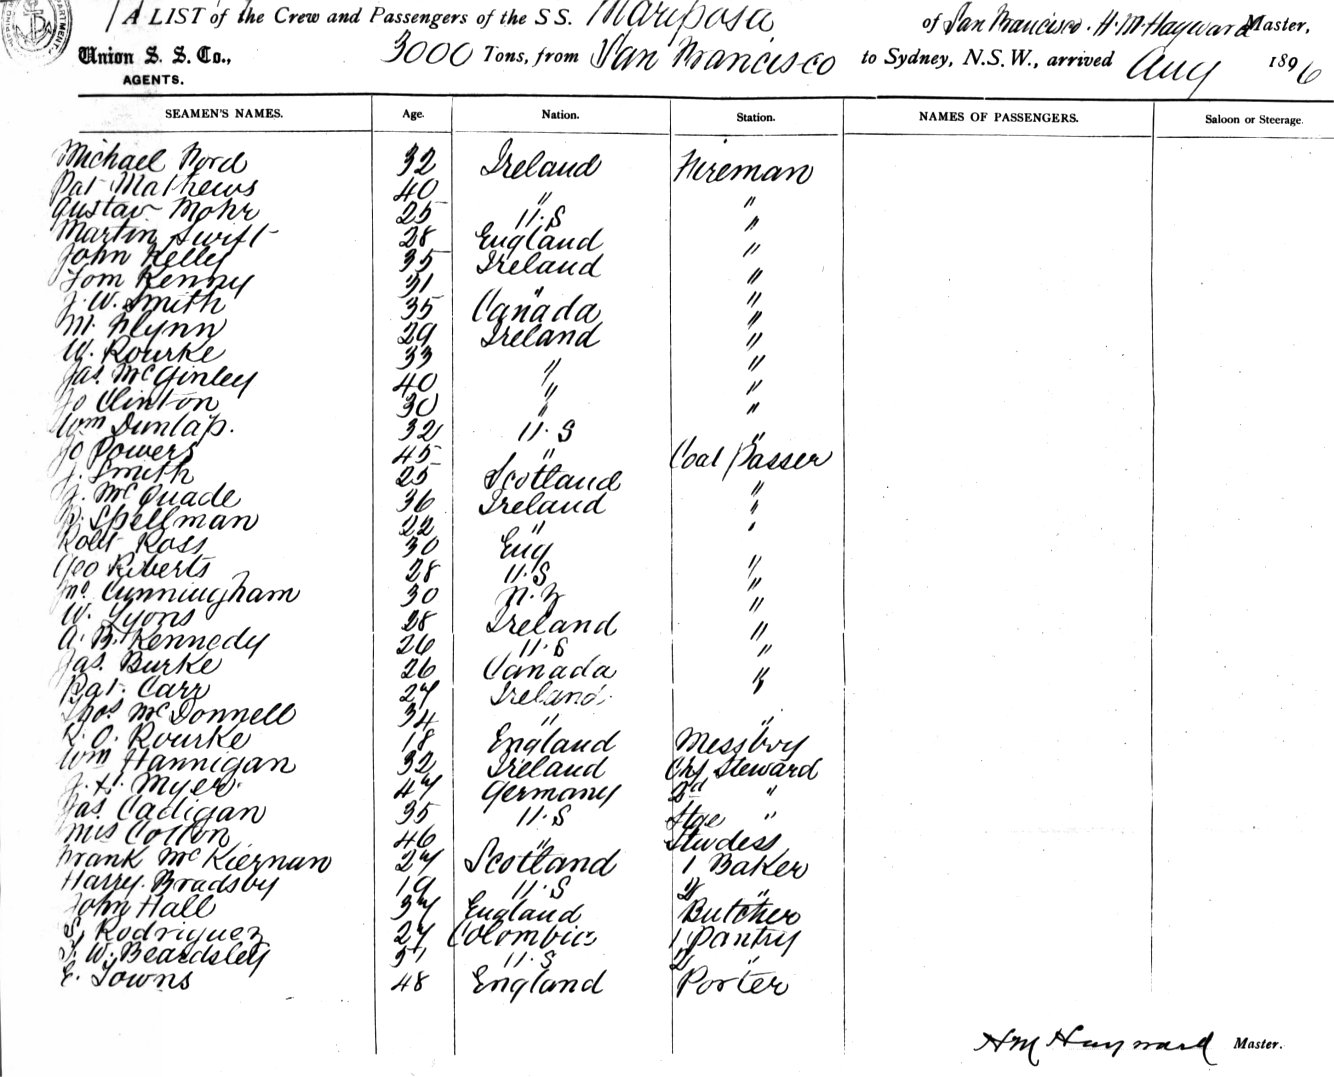 A LIST of the Crew and Passengers of the S S. Mariposa of San Francisco. H. M. Hayward Master,
Union S. S. Co., 3000 Tons, from San Francisco to Sydney, N.S.W., arrived Aug 1896
AGENTS.
SEAMEN'S NAMES. Age. Nation. Station. NAMES OF PASSENGERS. Saloon or Steerage.
Michael Ford 32 Ireland Fireman
Pat Mathews 40 " "
Gustav Mohr 25 U.S "
Martin Swift 28 England "
John Kelly 35 Ireland "
Tom Kenny 31 " "
J. W. Smith 35 Canada "
M. Flynn 29 Ireland "
W. Rourke 33 " "
Jas. McGinley 40 " "
Jo Clinton 30 " "
Wm Dunlap. 32 U.S "
Jo Powers 45 " Coal Passer
J. Smith 25 Scotland "
J. McQuade 36 Ireland "
Spellman 22 " "
Robt Ross 30 Eng "
Geo Roberts 28 U.S "
Cunningham 30 N.Z "
W. Lyons 28 Ireland "
A. B. Kennedy 26 U.S "
Jas. Burke 26 Canada "
Pat. Carr 27 Ireland "
Thos McDonnell 34 " "
R. O. Rourke 18 England Messboy
Wm Hannigan 32 Ireland Chf Steward
J. H. Myer. 47 Germany 2d "
Jas. Cadigan 35 U.S Stge "
Mrs Cotton 46 " Stwdess
Frank McKiernan 27 Scotland 1 Baker
Harry Bradsby 19 U.S 2 "
John Hall 37 England Butcher
S. Rodriguez 27 Colombia 1 Pantry
Beardsley U.S 2 "
E. Towns 48 England Porter
HM Hayward Master.